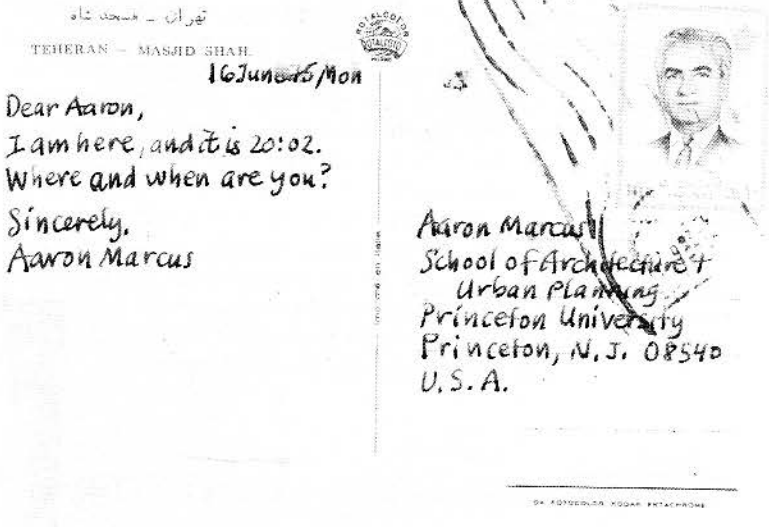 تهران - مسجد شاه
TEHERAN - MASJID SHAH.
ROTALCOLOR
ROTALFOTO
16 June 75/Mon
Dear Aaron,
I am here, and it is 20:02.
Where and when are you?
Sincerely,
Aaron Marcus
Aaron Marcus
School of Architecture +
Urban Planning
Princeton University
Princeton, N.J. 08540
U.S.A.
DA FOTOCOLOR KODAK EKTACHROME